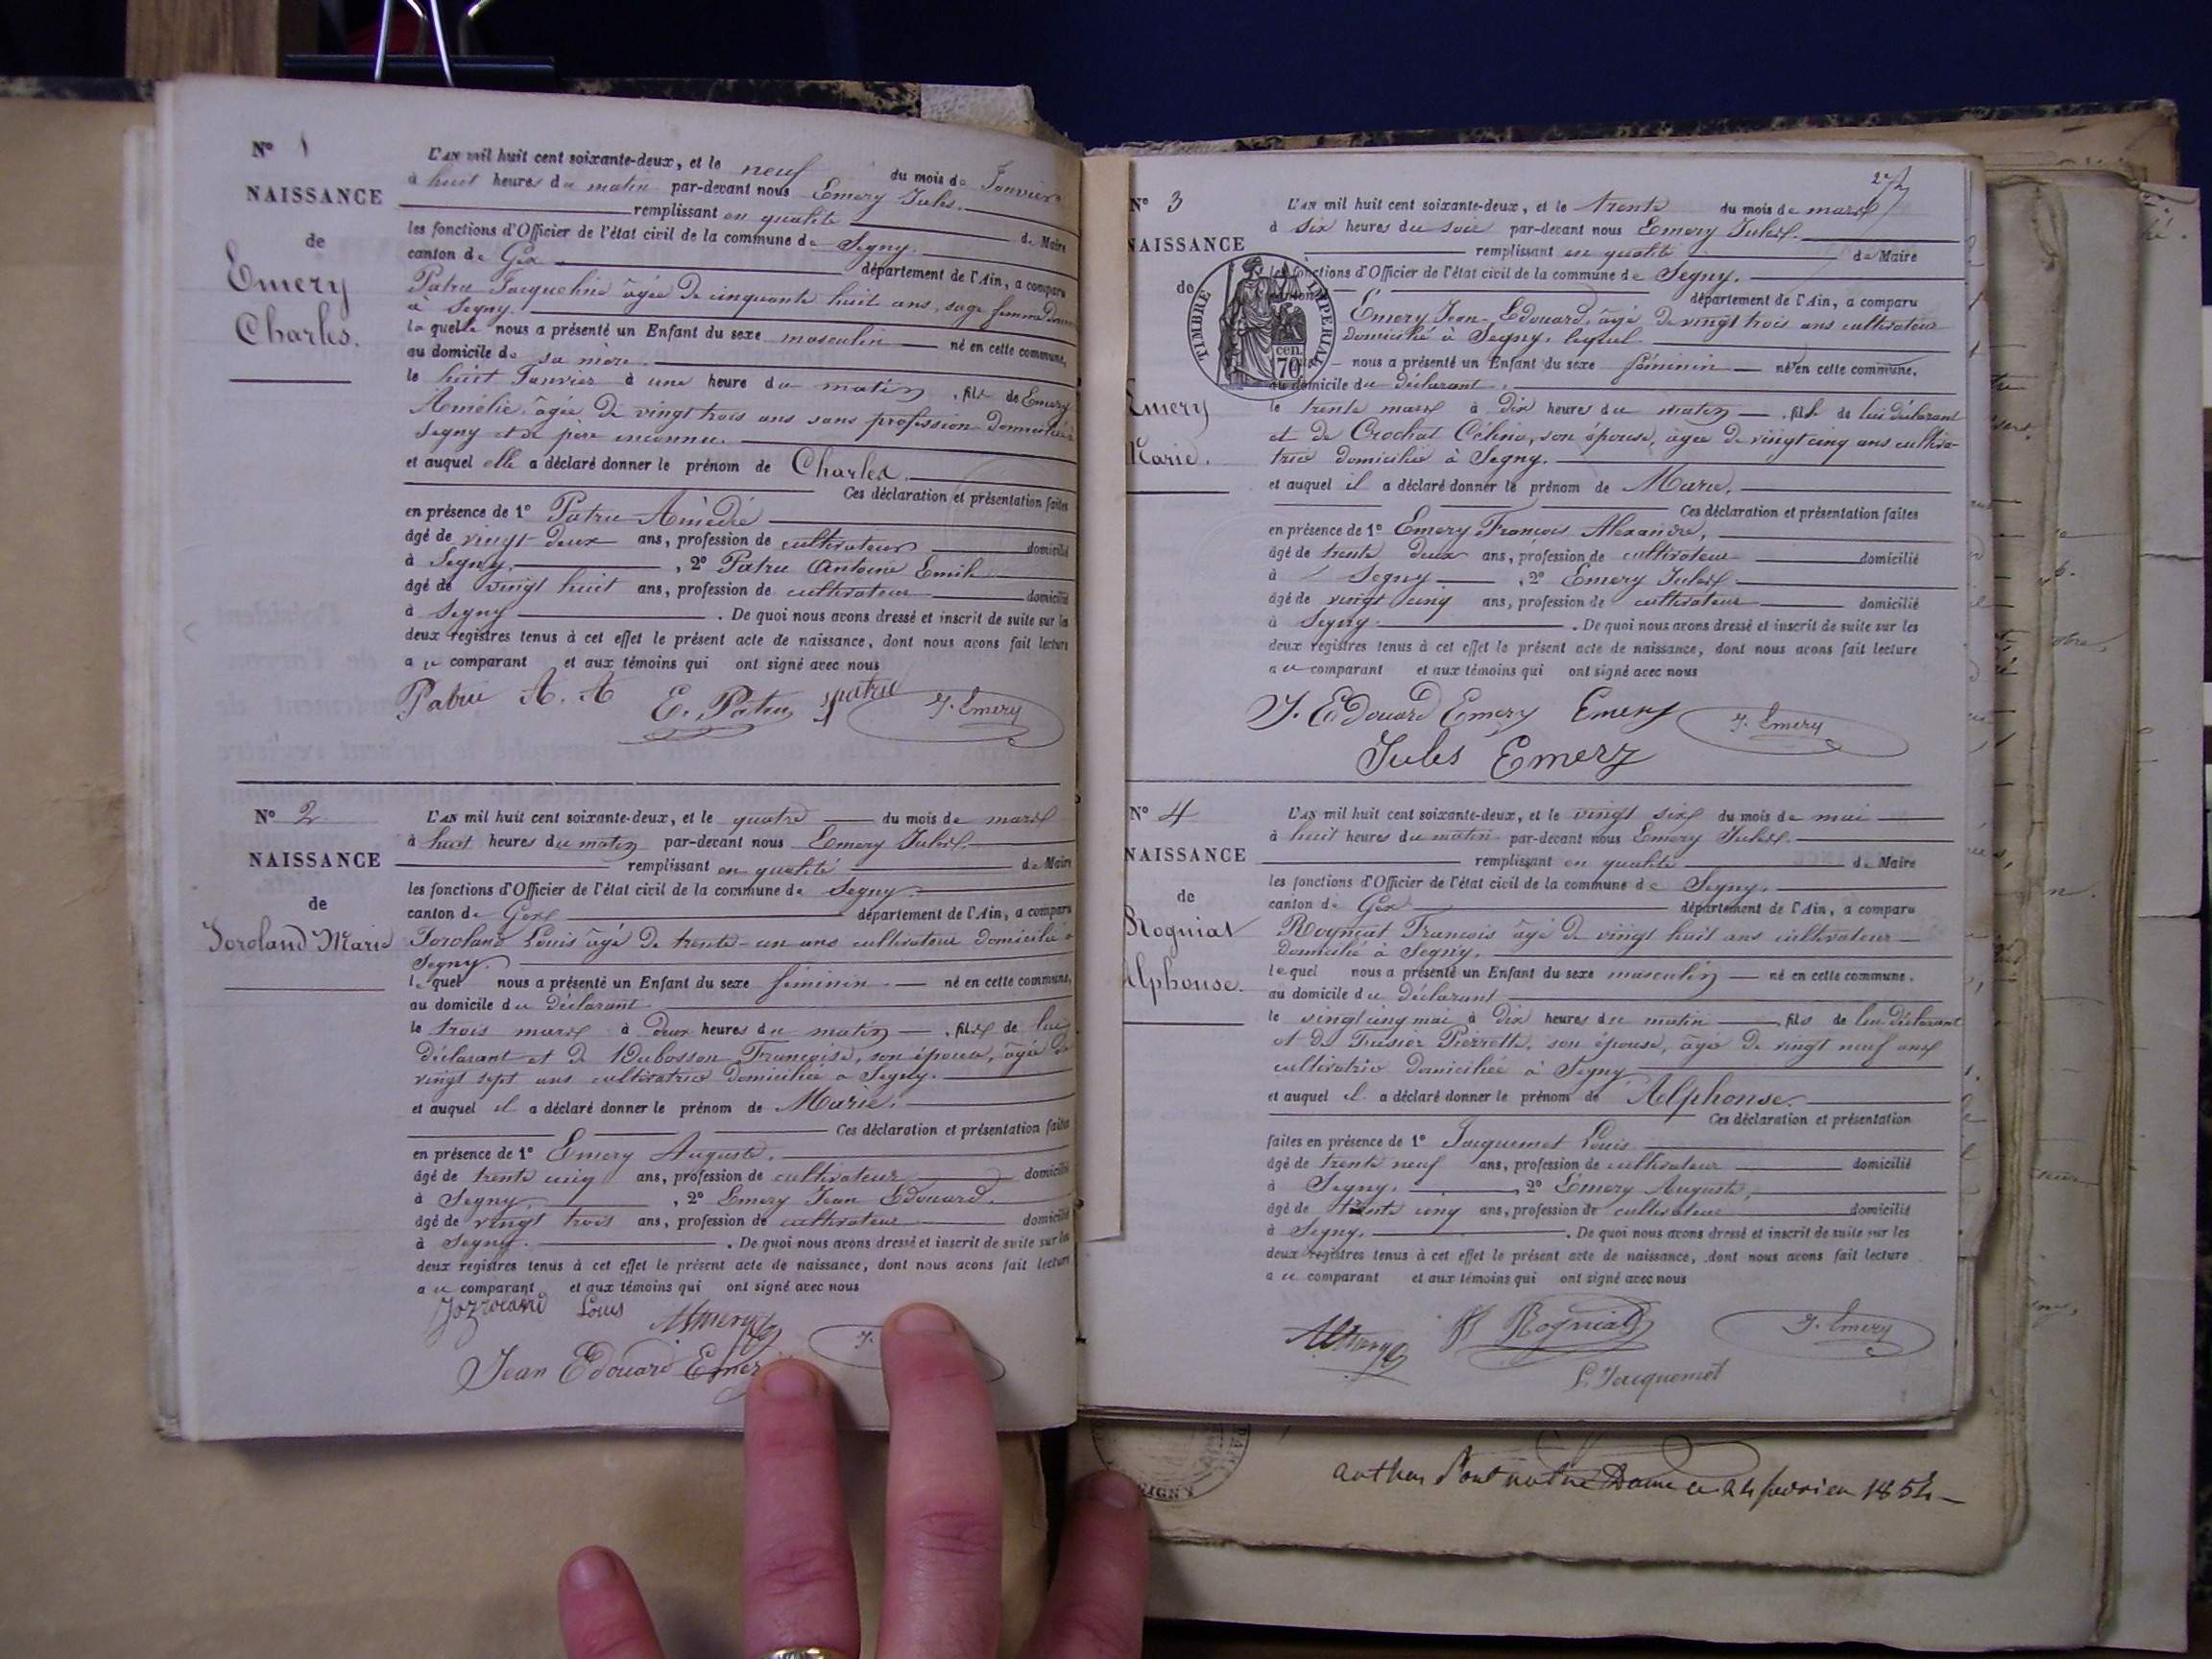 N° 1
NAISSANCE
de
Emery
Charles.
L'AN mil huit cent soixante-deux, et le neuf du mois de Janvier
à huit heures du matin par-devant nous Emery Jules.
remplissant en qualité de Maire
les fonctions d'Officier de l'état civil de la commune de Segny.
canton de Gex département de l'Ain, a comparu
Patru Jacqueline âgée de cinquante huit ans, sage femme
à Segny.
laquelle nous a présenté un Enfant du sexe masculin né en cette commune,
au domicile de sa mère
le huit Janvier à une heure du matin, fils de Emery
Amélie, âgée de vingt trois ans sans profession domiciliée à
Segny et de père inconnu.
et auquel elle a déclaré donner le prénom de Charles.
Ces déclaration et présentation faites
en présence de 1° Patru Amédé
âgé de vingt deux ans, profession de cultivateur domicilié
à Segny, 2° Patru Antoine Emile
âgé de vingt huit ans, profession de cultivateur domicilié
à Segny. De quoi nous avons dressé et inscrit de suite sur les
deux registres tenus à cet effet le présent acte de naissance, dont nous avons fait lecture
au comparant et aux témoins qui ont signé avec nous
Patru A. A E. Patru patru J. Emery
N° 2
NAISSANCE
de
Joroland Marie
L'AN mil huit cent soixante-deux, et le quatre du mois de mars
à huit heures du matin par-devant nous Emery Jules.
remplissant en qualité de Maire
les fonctions d'Officier de l'état civil de la commune de Segny.
canton de Gex département de l'Ain, a comparu
Joroland Louis âgé de trente-un ans cultivateur domicilié à
Segny.
lequel nous a présenté un Enfant du sexe féminin né en cette commune,
au domicile du déclarant
le trois mars à deux heures du matin, fille de lui
déclarant et de Dubosson Françoise, son épouse, âgée de
vingt sept ans cultivatrice domiciliée à Segny.
et auquel il a déclaré donner le prénom de Marie.
Ces déclaration et présentation faites
en présence de 1° Emery Auguste.
âgé de trente cinq ans, profession de cultivateur domicilié
à Segny, 2° Emery Jean Edouard.
âgé de vingt trois ans, profession de cultivateur domicilié
à Segny. De quoi nous avons dressé et inscrit de suite sur les
deux registres tenus à cet effet le présent acte de naissance, dont nous avons fait lecture
au comparant et aux témoins qui ont signé avec nous
Louis AEmery
Jean Edouard Emer J.
27
N° 3
NAISSANCE
de
Emery
Marie.
TIMBRE IMPERIAL
70 cen.
L'AN mil huit cent soixante-deux, et le trente du mois de mars
à six heures du soir par-devant nous Emery Jules.
remplissant en qualité de Maire
les fonctions d'Officier de l'état civil de la commune de Segny.
département de l'Ain, a comparu
Emery Jean-Edouard, âgé de vingt trois ans cultivateur
domicilié à Segny, lequel
nous a présenté un Enfant du sexe féminin né en cette commune,
au domicile du déclarant.
le trente mars à dix heures du matin, fille de lui déclarant
et de Crochat Célina, son épouse, âgée de vingt cinq ans cultiva-
trice domiciliée à Segny.
et auquel il a déclaré donner le prénom de Marie.
Ces déclaration et présentation faites
en présence de 1° Emery François Alexandre,
âgé de trente deux ans, profession de cultivateur domicilié
à Segny, 2° Emery Jules
âgé de vingt cinq ans, profession de cultivateur domicilié
à Segny. De quoi nous avons dressé et inscrit de suite sur les
deux registres tenus à cet effet le présent acte de naissance, dont nous avons fait lecture
au comparant et aux témoins qui ont signé avec nous
J. Edouard Emery Emery J. Emery
Jules Emery
N° 4
NAISSANCE
de
Rogniat
Alphonse.
L'AN mil huit cent soixante-deux, et le vingt six du mois de mai
à huit heures du matin par-devant nous Emery Jules.
remplissant en qualité de Maire
les fonctions d'Officier de l'état civil de la commune de Segny.
canton de Gex département de l'Ain, a comparu
Rogniat François âgé de vingt huit ans cultivateur
domicilié à Segny.
lequel nous a présenté un Enfant du sexe masculin né en cette commune.
au domicile du déclarant
le vingt cinq mai à dix heures du matin, fils de lui déclarant
et de Pierrette, son épouse, âgée de vingt neuf ans
cultivatrice domiciliée à Segny
et auquel il a déclaré donner le prénom de Alphonse.
Ces déclaration et présentation
faites en présence de 1° Jacquemet Louis
âgé de trente neuf ans, profession de cultivateur domicilié
à Segny, 2° Emery Auguste,
âgé de trente cinq ans, profession de cultivateur domicilié
à Segny. De quoi nous avons dressé et inscrit de suite sur les
deux registres tenus à cet effet le présent acte de naissance, dont nous avons fait lecture
au comparant et aux témoins qui ont signé avec nous
AEmery F Rogniat J. Emery
L. Jacquemet
notre Dame ce 24 fevrier 1854